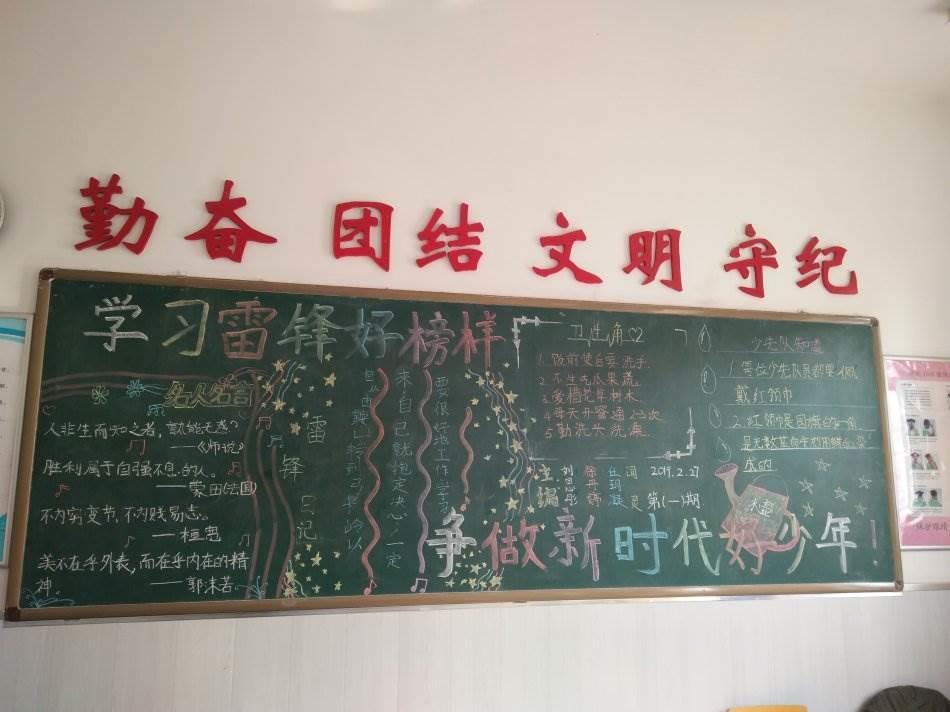 勤奋 团结 文明 守纪
学习雷锋好榜样
名人名言
人非生而知之者,孰能无惑?
——《师说》
胜利属于自强不息的人。
——蒙田(法国)
不为穷变节,不为贱易志。
——桓宽
美不在乎外表,而在乎内在的精
神。
——郭沫若
雷锋日记
来自己就抱定决心一定
要很好地工作学习
卫生角
1.饭前便后要洗手
2.不生吃瓜果蔬。
3.爱惜花草树木
4.每天开窗通
5.勤洗头洗澡
主编
2019.2.27
第(一)期
少先队知识
1.每位少先队员都要佩
戴红领巾
2.红领巾是国旗的一角
是无数革命先烈用鲜血染
成的
争做新时代好少年!